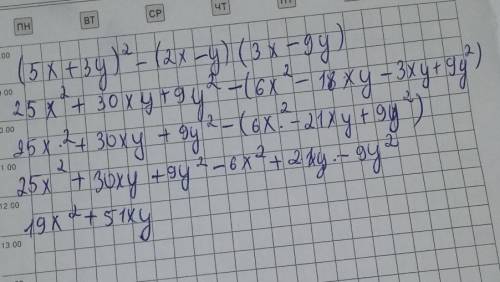 ПН ВТ СР ЧТ
(5x+3y)² - (2x-y)(3x-9y)
25x² + 30xy + 9y² - (6x² - 18xy - 3xy + 9y²)
25x² + 30xy + 9y² - (6x² - 21xy + 9y²)
11:00
25x² + 30xy + 9y² - 6x² + 21xy - 9y²
12:00
19x² + 51xy
13:00